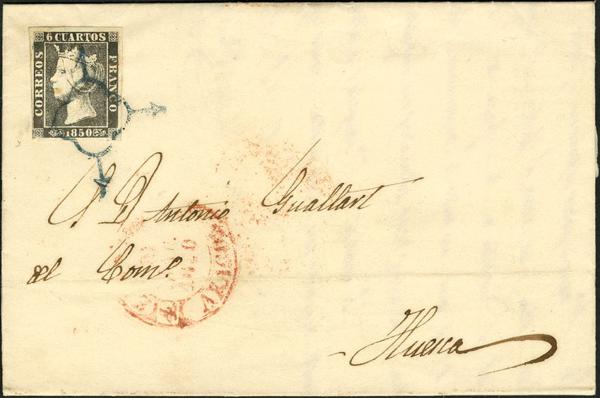 6 CUARTOS
CORREOS
FRANCO
1850
S. D. Antonio Guallart
del Com.º
Huesca